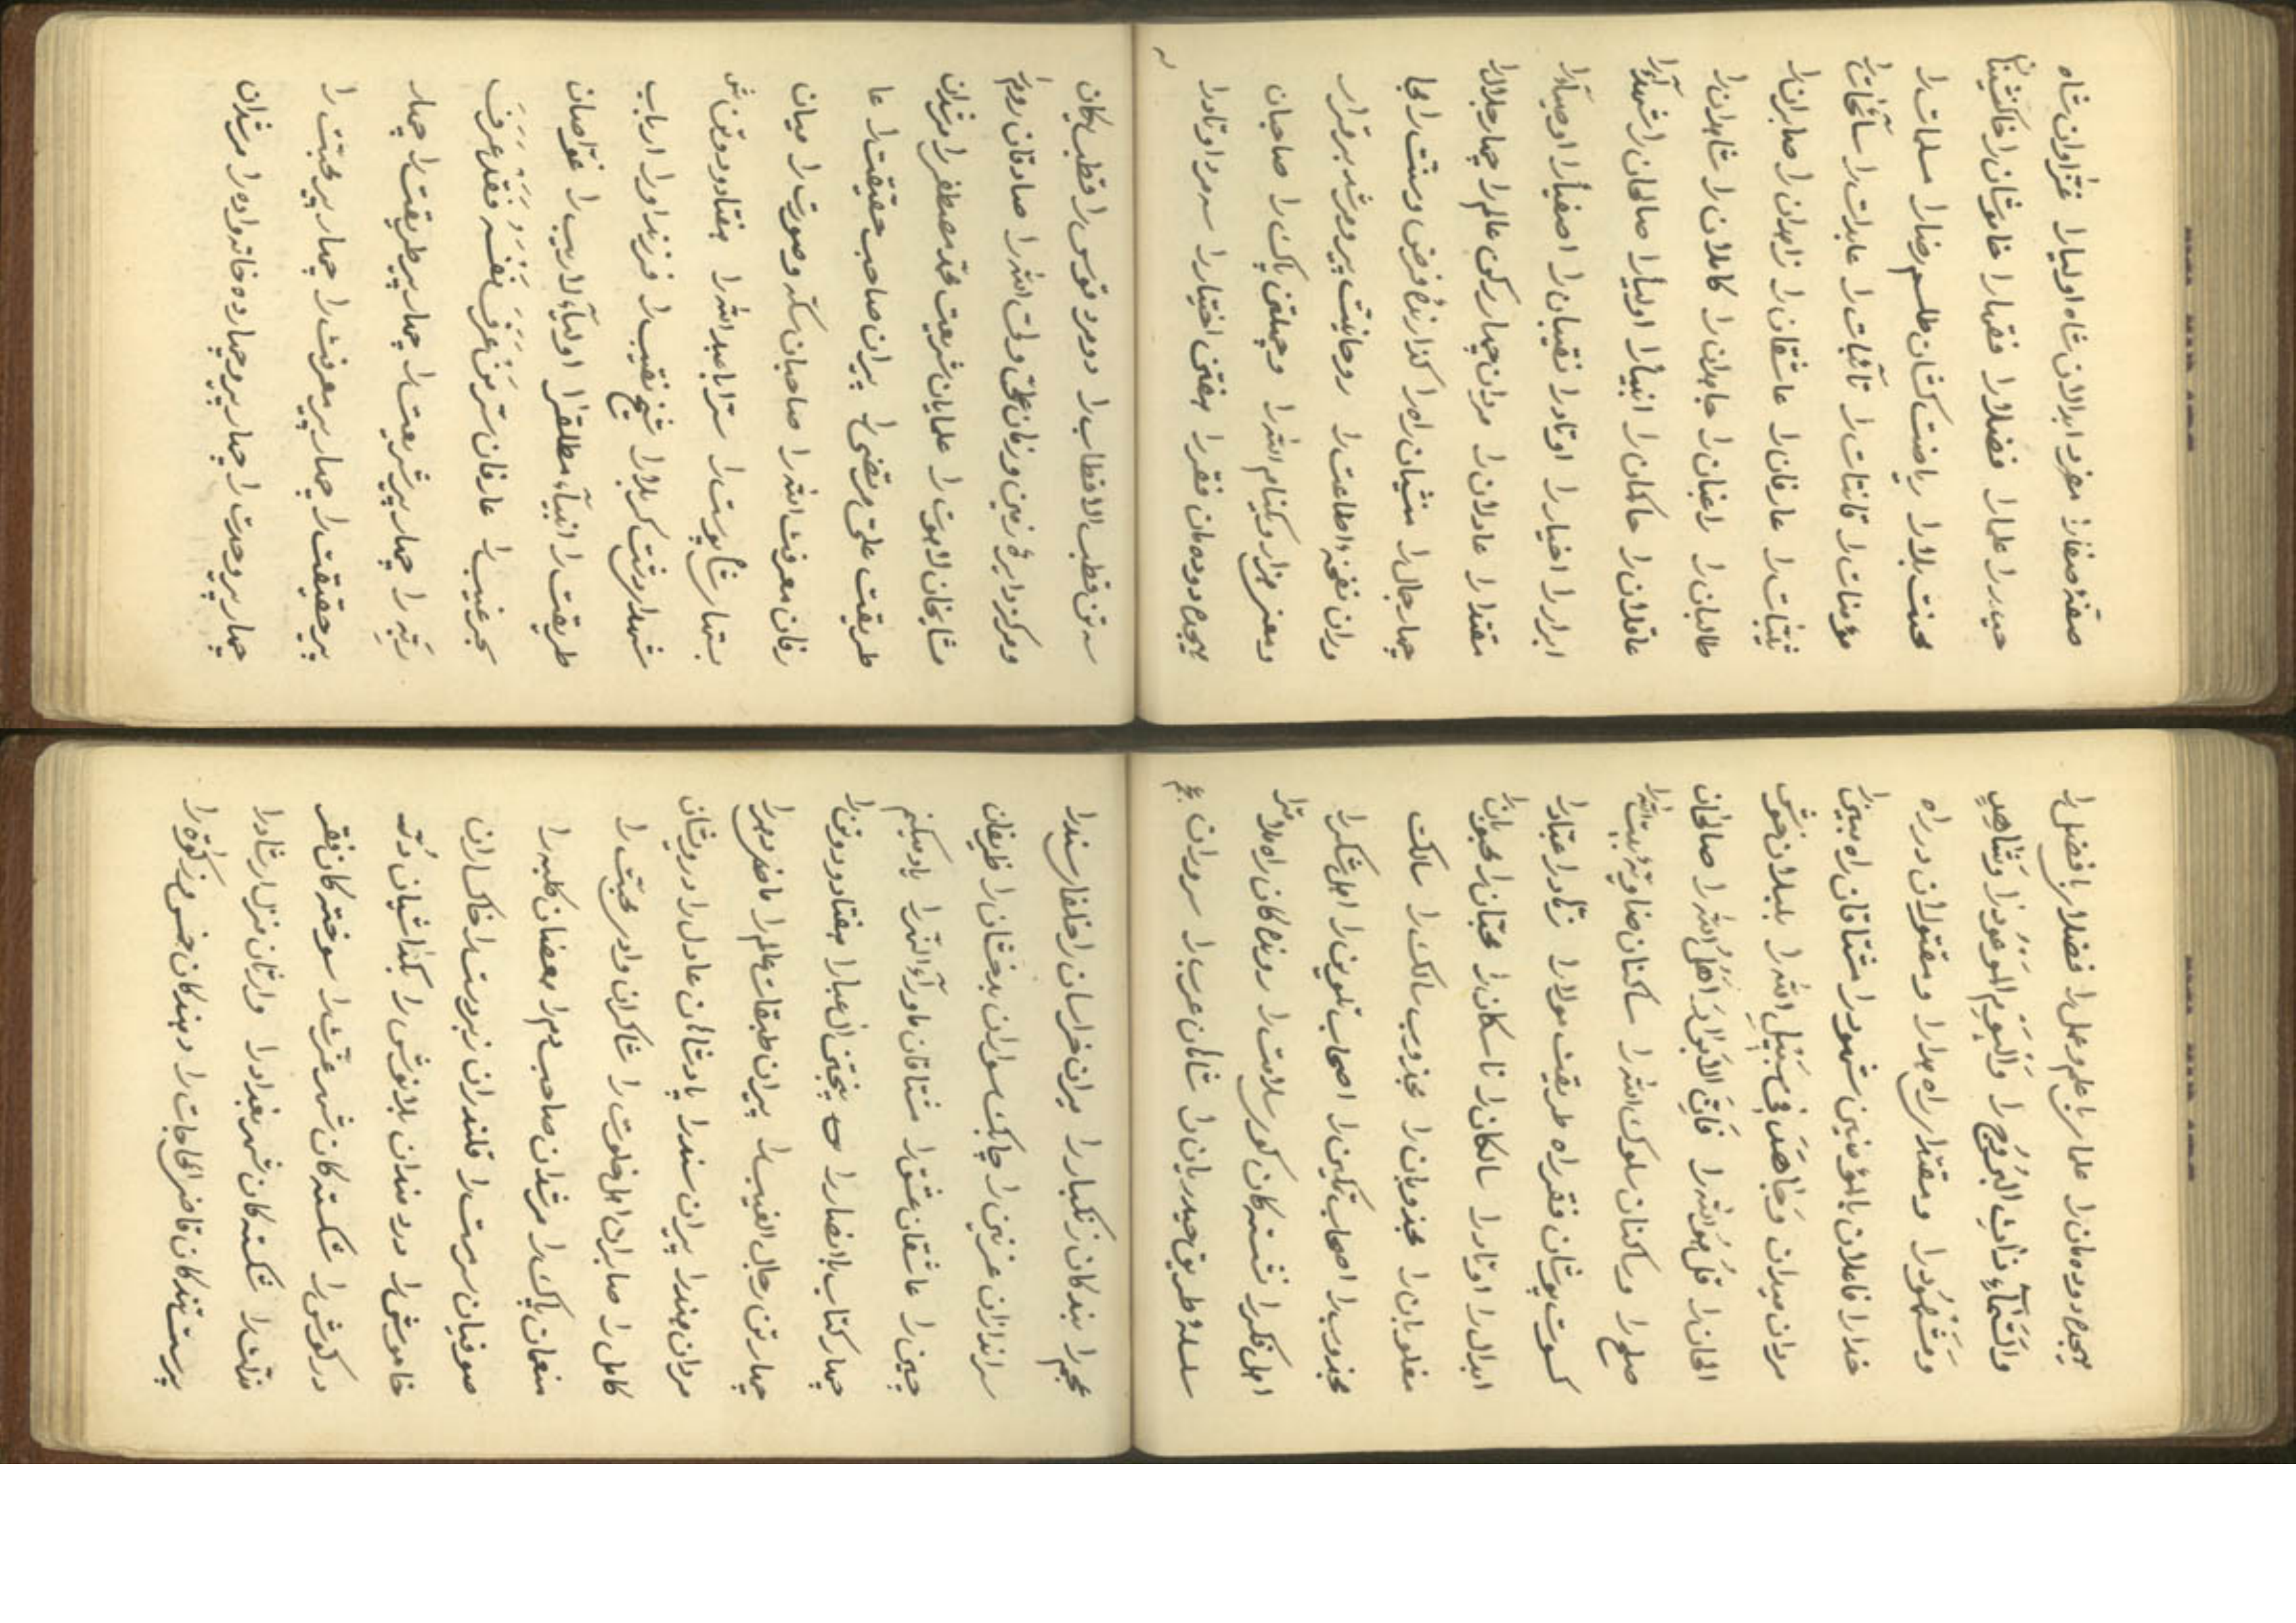 صفّهٔ صفا را ابدالان شاه اولیا را غزاوان شاه
حیدر را علما را فضلا را فقها را خاموشان را خاکنشینانرا
محنت بلا را ریاضت کشان طلسم رضا را مسلمات را
مؤمنات را قانتات را تآئبات را عابدات را سآئحات را
ثیّبات را عارفان را عاشقان را زاهدان را صابران را
طالبان را راغبان را جاهدان را کاملان را شاهدان را
عاقلان را حاکمان را انبیا را اولیا را صالحان را شهدآء را
ابرار را اخیار را اوتاد را نقیبان را اصفیا را اوصیآء را
مقتدا را عادلان را مردان چهار رکن عالم را چهار جلال را
چهار جمال را منشیان راه را گذارندهٔ فرض و سنت را بجا
وران نفخهٔ اطاعت را روحانیت پیر و مرشد برقرار
و معنی هزار و یکنام الله را و چهلتن پاک را صاحبان
هیجده دودمان فقر را هفتتن اختیار را سه مرد اوتاد را
سه
سه تن قطب الاقطاب را دو مرد قوس را قطب یکان
و مرکز دایرهٔ زمین و زمان علی ولی الله را صادقان روم را
مشایخان لاهوت را علمایان شریعت محمّد مصطفی را مرشدان
طریقت علی مرتضی را پیران صاحب حقیقت را عا
رفان معرفت الله را صاحبان سکّه و صورت را میان
شاه پوست را هفتاد و دو تن ش
شهدار دشت کربلا را شیخ نقیب را فرزند او را ارباب
طریقت را انبیآء مطلقرا اولیآء لاریب را غوّاصان
بحر غیب را عارفان ستر مَنْ عَرَفَ نَفْسَهُ فَقَدْ عَرَفَ
رَبَّهِ را چهار پیر شریعت را چهار پیر طریقت را چهار
پیر حقیقت را چهار پیر معرفت را چهار پیر محبّت را
چهار پیر وحدت را چهار پیر و چهارده خانواده را مرشدان
هیجده دودمان را علمار با علم و عمل را فضلار با فضل را
وَالسَّمآءِ ذاتِ البُرُوجِ را وَالیَوْمِ المَوْعُودِ را وَشَاهِدٍ
وَمَشْهُودٍ را و مقتدار راه هدا را و مقتولان در راه
خدا را بالمؤمنین شهود را مشتاقان راه مبین را
مردان میدان وَجَاهَدَ فی سَبیلِ اللهِ را بلبلان خوش
الحان را قُل هُوَ الله را الاَبْرارَ اَهْلُ الله را صالحان
صلح را و ساکنان سلوک الله را ساکنان زاویهٔ بیت الله را
کسوت پوشان فقر راه طریقت مولا را زهّاد را عبّاد را
ابدال را اوتاد را سالکان را ناسکان را محبّان را محبوبان را
مغلوبان را مجذوبان را مجذوب سالک را سالک
مجذوب را اصحاب تمکین را اصحاب تلوین را اهل شکر را
اهل فکر را نشسته کان کوی سلامت را رونده کان راه ملامت را
سلسلهٔ طریق حیدریان را شاهان عرب را سروران عجم
عجم را بنده کان زنکبار را میران خراسان را خلفار سند را
سراندازان غزنین را چابک سواران بدخشان را ظریفان
چین را عاشقان عشق را مشتاقان ماورآءالنّهر را یاد میکنم
چهار کتاب با انصار را پنجتن آل عبا را هفتاد و دو تن را
چهار تن رجال الغیب را پیران طبقات عالم را
مردان هند را پیران سند را پادشاهان عادل را درویشان
کامل را صابران اهل خلوت را شاکران وادی محبّت را
منعمان پاک را مرشدان صاحب دم را کلیه را
صوفیان سرمست را قلندران زبردست را خاکساران
خاموشی را دردمندان بلانوش را دُرّ
در کوش را شکسته کان شهر غربت را سوخته کان فقر
مثلث را شکسته کان شهر بغداد را وارثان منزل ارشاد را
پرستندکان قاضی الحاجات را دهندکان خمس و زکوٰة را